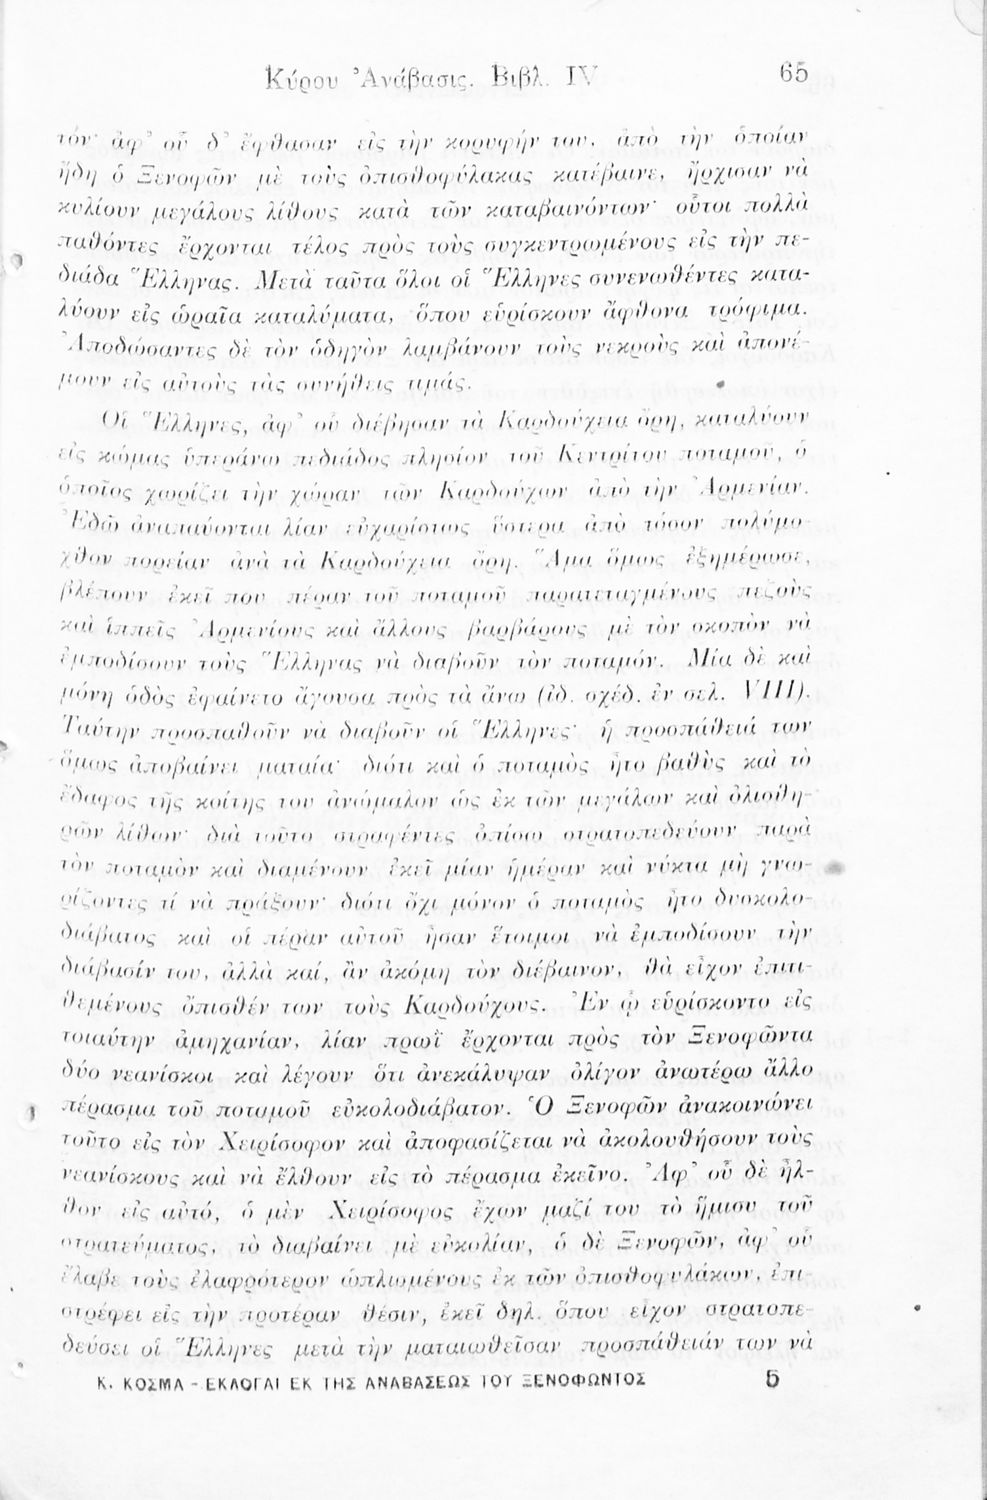 Κύρου Ἀνάβασις. Βιβλ. IV 65
τόν· ἀφ’ οὗ δ’ ἔφθασαν εἰς τὴν κορυφήν του, ἀπὸ τὴν ὁποίαν
ἤδη ὁ Ξενοφῶν μὲ τοὺς ὀπισθοφύλακας κατέβαινε, ἤρχισαν νὰ
κυλίουν μεγάλους λίθους κατὰ τῶν καταβαινόντων· οὗτοι πολλὰ
παθόντες ἔρχονται τέλος πρὸς τοὺς συγκεντρωμένους εἰς τὴν πε-
διάδα Ἕλληνας. Μετὰ ταῦτα ὅλοι οἱ Ἕλληνες συνενωθέντες κατα-
λύουν εἰς ὡραῖα καταλύματα, ὅπου εὑρίσκουν ἄφθονα τρόφιμα.
Ἀποδώσαντες δὲ τὸν ὁδηγὸν λαμβάνουν τοὺς νεκροὺς καὶ ἀπονέ-
μουν εἰς αὐτοὺς τὰς συνήθεις τιμάς.
Οἱ Ἕλληνες, ἀφ’ οὗ διέβησαν τὰ Καρδούχεια ὄρη, καταλύουν
εἰς κώμας ὑπεράνω πεδιάδος πλησίον τοῦ Κεντρίτου ποταμοῦ, ὁ
ὁποῖος χωρίζει τὴν χώραν τῶν Καρδούχων ἀπὸ τὴν Ἀρμενίαν.
Ἐδῶ ἀναπαύονται λίαν εὐχαρίστως ὕστερα ἀπὸ τόσον πολύμο-
χθον πορείαν ἀνὰ τὰ Καρδούχεια ὄρη. Ἅμα ὅμως ἐξημέρωσε,
βλέπουν ἐκεῖ που πέραν τοῦ ποταμοῦ παρατεταγμένους πεζοὺς
καὶ ἱππεῖς Ἀρμενίους καὶ ἄλλους βαρβάρους μὲ τὸν σκοπὸν νὰ
ἐμποδίσουν τοὺς Ἕλληνας νὰ διαβοῦν τὸν ποταμόν. Μία δὲ καὶ
μόνη ὁδὸς ἐφαίνετο ἄγουσα πρὸς τὰ ἄνω (ἰδ. σχέδ. ἐν σελ. VIII).
Ταύτην προσπαθοῦν νὰ διαβοῦν οἱ Ἕλληνες· ἡ προσπάθειά των
ὅμως ἀποβαίνει ματαία· διότι καὶ ὁ ποταμὸς ἦτο βαθὺς καὶ τὸ
ἔδαφος τῆς κοίτης του ἀνώμαλον ὡς ἐκ τῶν μεγάλων καὶ ὀλισθη-
ρῶν λίθων· διὰ τοῦτο στραφέντες ὀπίσω στρατοπεδεύουν παρὰ
τὸν ποταμὸν καὶ διαμένουν ἐκεῖ μίαν ἡμέραν καὶ νύκτα μὴ γνω-
ρίζοντες τί νὰ πράξουν· διότι ὄχι μόνον ὁ ποταμὸς ἦτο δυσκολο-
διάβατος καὶ οἱ πέραν αὐτοῦ ἦσαν ἕτοιμοι νὰ ἐμποδίσουν τὴν
διάβασίν του, ἀλλὰ καί, ἂν ἀκόμη τὸν διέβαινον, θὰ εἶχον ἐπιτι-
θεμένους ὄπισθέν των τοὺς Καρδούχους. Ἐν ᾧ εὑρίσκοντο εἰς
τοιαύτην ἀμηχανίαν, λίαν πρωῒ ἔρχονται πρὸς τὸν Ξενοφῶντα
δύο νεανίσκοι καὶ λέγουν ὅτι ἀνεκάλυψαν ὀλίγον ἀνωτέρω ἄλλο
πέρασμα τοῦ ποταμοῦ εὐκολοδιάβατον. Ὁ Ξενοφῶν ἀνακοινώνει
τοῦτο εἰς τὸν Χειρίσοφον καὶ ἀποφασίζεται νὰ ἀκολουθήσουν τοὺς
νεανίσκους καὶ νὰ ἔλθουν εἰς τὸ πέρασμα ἐκεῖνο. Ἀφ’ οὗ δὲ ἦλ-
θον εἰς αὐτό, ὁ μὲν Χειρίσοφος ἔχων μαζί του τὸ ἥμισυ τοῦ
στρατεύματος, τὸ διαβαίνει μὲ εὐκολίαν, ὁ δὲ Ξενοφῶν, ἀφ’ οὗ
ἔλαβε τοὺς ἐλαφρότερον ὡπλισμένους ἐκ τῶν ὀπισθοφυλάκων, ἐπι-
στρέφει εἰς τὴν προτέραν θέσιν, ἐκεῖ δηλ. ὅπου εἶχον στρατοπε-
δεύσει οἱ Ἕλληνες μετὰ τὴν ματαιωθεῖσαν προσπάθειάν των νὰ
Κ. ΚΟΣΜΑ - ΕΚΛΟΓΑΙ ΕΚ ΤΗΣ ΑΝΑΒΑΣΕΩΣ ΤΟΥ ΞΕΝΟΦΩΝΤΟΣ 5